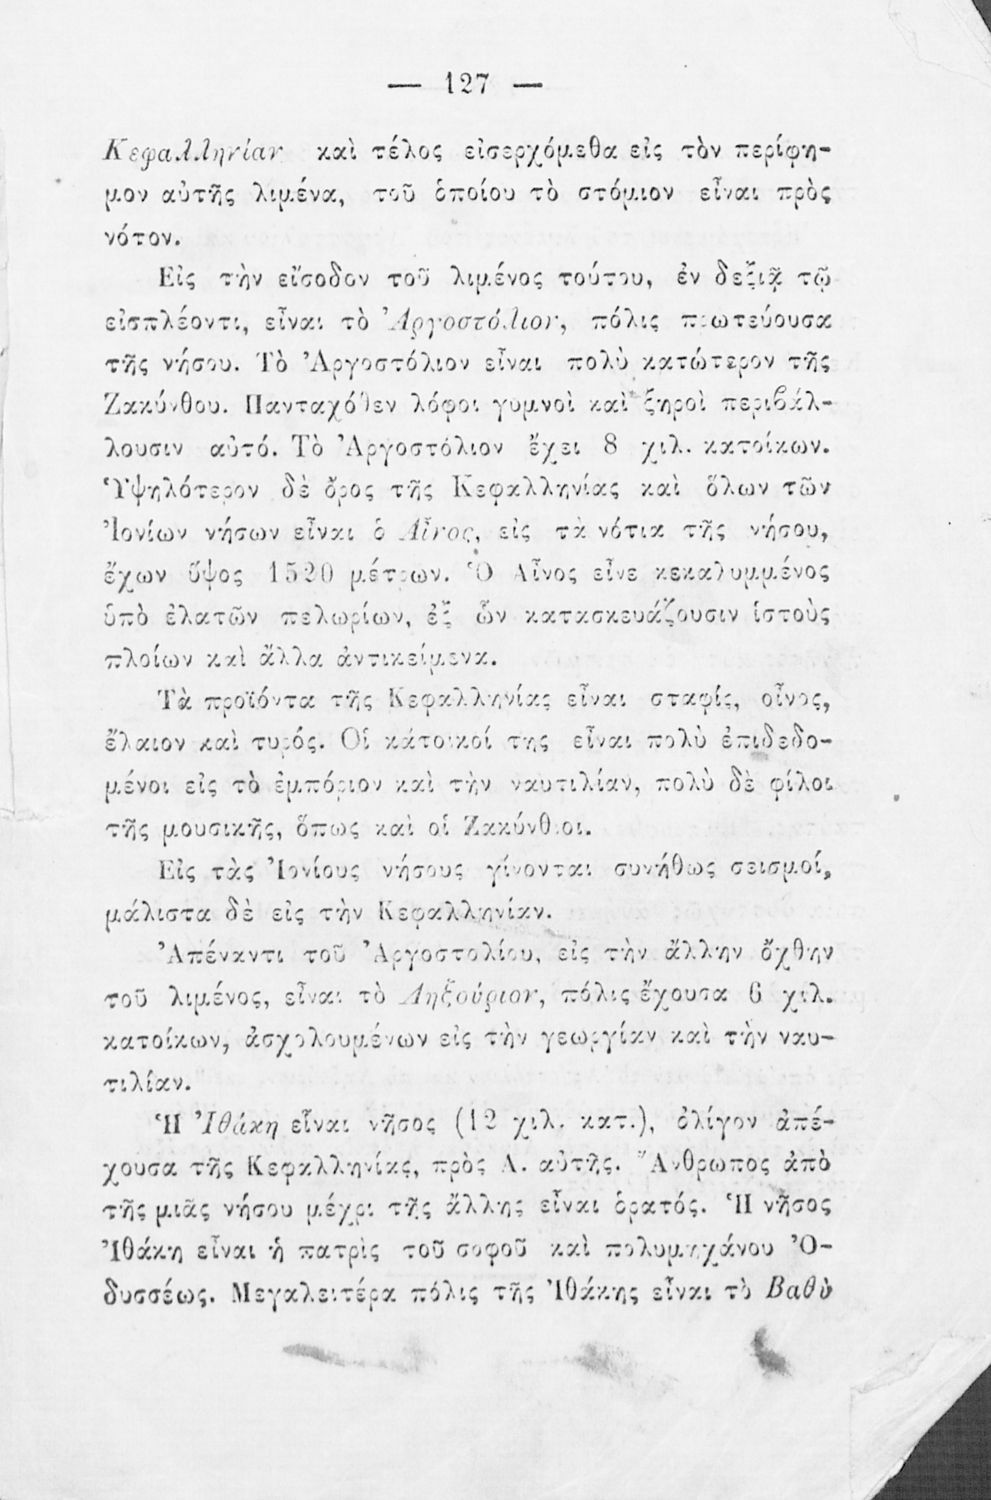 — 127 —
Κεφαλληνίαν καὶ τέλος εἰσερχόμεθα εἰς τὸν περίφη-
μον αὐτῆς λιμένα, τοῦ ὁποίου τὸ στόμιον εἶναι πρὸς
νότον.
Εἰς τὴν εἴσοδον τοῦ λιμένος τούτου, ἐν δεξιᾷ τῷ
εἰσπλέοντι, εἶναι τὸ Ἀργοστόλιον, πόλις πρωτεύουσα
τῆς νήσου. Τὸ Ἀργοστόλιον εἶναι πολὺ κατώτερον τῆς
Ζακύνθου. Πανταχόθεν λόφοι γυμνοὶ καὶ ξηροὶ περιβάλ-
λουσιν αὐτό. Τὸ Ἀργοστόλιον ἔχει 8 χιλ. κατοίκων.
Ὑψηλότερον δὲ ὄρος τῆς Κεφαλληνίας καὶ ὅλων τῶν
Ἰονίων νήσων εἶναι ὁ Αἶνος, εἰς τὰ νότια τῆς νήσου,
ἔχων ὕψος 1520 μέτρων. Ὁ Αἶνος εἶνε κεκαλυμμένος
ὑπὸ ἐλατῶν πελωρίων, ἐξ ὧν κατασκευάζουσιν ἱστοὺς
πλοίων καὶ ἄλλα ἀντικείμενα.
Τὰ προϊόντα τῆς Κεφαλληνίας εἶναι σταφίς, οἶνος,
ἔλαιον καὶ τυρός. Οἱ κάτοικοί της εἶναι πολὺ ἐπιδεδο-
μένοι εἰς τὸ ἐμπόριον καὶ τὴν ναυτιλίαν, πολὺ δὲ φίλοι
τῆς μουσικῆς, ὅπως καὶ οἱ Ζακύνθιοι.
Εἰς τὰς Ἰονίους νήσους γίνονται συνήθως σεισμοί,
μάλιστα δὲ εἰς τὴν Κεφαλληνίαν.
Ἀπέναντι τοῦ Ἀργοστολίου, εἰς τὴν ἄλλην ὄχθην
τοῦ λιμένος, εἶναι τὸ Ληξούριον, πόλις ἔχουσα 6 χιλ.
κατοίκων, ἀσχολουμένων εἰς τὴν γεωργίαν καὶ τὴν ναυ-
τιλίαν.
Ἡ Ἰθάκη εἶναι νῆσος (12 χιλ. κατ.), ὀλίγον ἀπέ-
χουσα τῆς Κεφαλληνίας, πρὸς Α. αὐτῆς. Ἄνθρωπος ἀπὸ
τῆς μιᾶς νήσου μέχρι τῆς ἄλλης εἶναι ὁρατός. Ἡ νῆσος
Ἰθάκη εἶναι ἡ πατρὶς τοῦ σοφοῦ καὶ πολυμηχάνου Ὀ-
δυσσέως. Μεγαλειτέρα πόλις τῆς Ἰθάκης εἶναι τὸ Βαθὺ